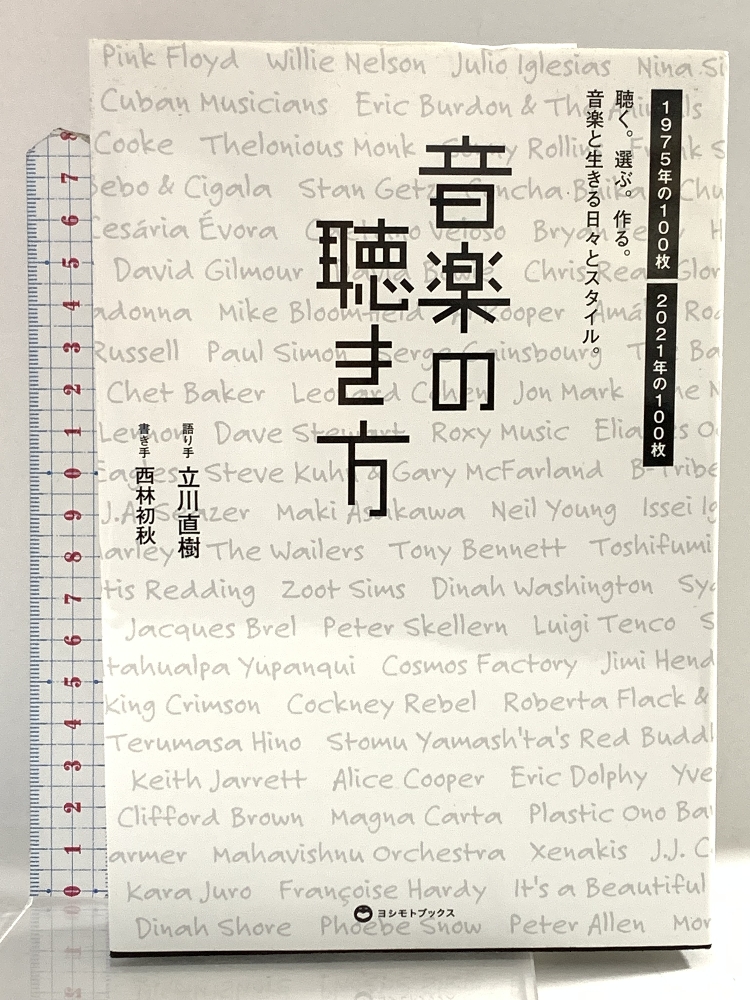 Pink Floyd Willie Nelson Julio Iglesias Nina Si
Cuban Musicians Eric Burdon & The Animals
Cooke Thelonious Monk Sonny Rollins Frank S
Bebo & Cigala Stan Getz Concha Buika Chu
Cesária Évora Caetano Veloso Bryan H
David Gilmour David Bowie Chris Rea Glor
adonna Mike Bloomfield Al Kooper Amá Ro
Russell Paul Simon Serge Gainsbourg Ba
Chet Baker Leonard Cohen Jon Mark
Lennon Dave Stewart Roxy Music Elia
Eagles Steve Kuhn & Gary McFarland B-Tribe
J.A. Maki Asakawa Neil Young Issei
arley The Wailers Tony Bennett Toshifumi
tis Redding Zoot Sims Dinah Washington Sy
Jacques Brel Peter Skellern Luigi Tenco S
tahualpa Yupanqui Cosmos Factory Jimi Hend
king Crimson Cockney Rebel Roberta Flack &
Terumasa Hino Stomu Yamash'ta's Red Budd
Keith Jarrett Alice Cooper Eric Dolphy Yve
Clifford Brown Magna Carta Plastic Ono Ba
armer Mahavishnu Orchestra Xenakis J.J. C
Kara Juro Françoise Hardy It's a Beautiful
Dinah Shore Phoebe Snow Peter Allen Mor
1975年の100枚
2021年の100枚
聴く。選ぶ。作る。
音楽と生きる日々とスタイル。
音楽の
聴き方
語り手 立川直樹
書き手 西林初秋
ヨシモトブックス
8
7
6
5
4
3
2
1
0
9
8
7
6
5
4
3
2
1
0